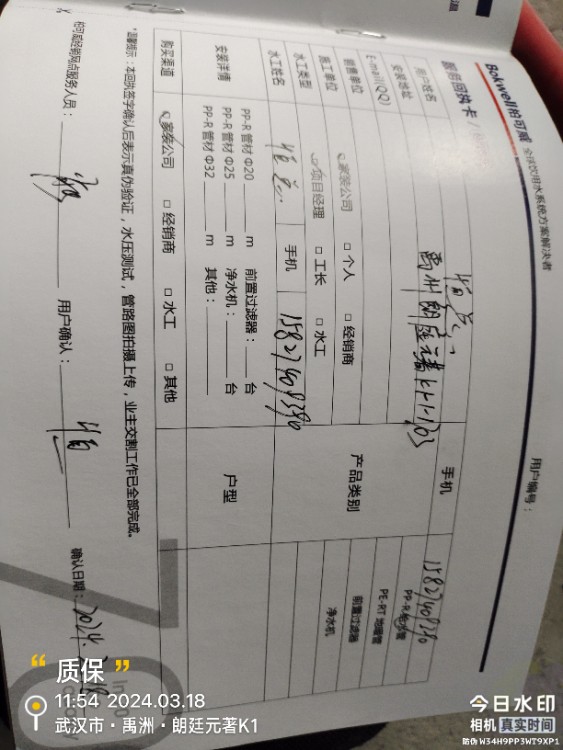 Bokwell柏可威 全球饮用水系统方案解决者
服务回执卡
用户编号：
用户姓名
手机 15827409390
安装地址
E-mail(QQ)
产品类别
PP-R给水管
PE-RT地暖管
前置过滤器
净水机
销售单位 □家装公司 □个人 □经销商
施工单位 项目经理 □工长 □水工
水工类型
水工姓名 手机 15827409390
安装详情
PP-R管材 Φ20 ____ m 前置过滤器：____ 台
PP-R管材 Φ25 ____ m 净水机：____ 台
PP-R管材 Φ32 ____ m 其他：____
户型
购买渠道 家装公司 □经销商 □水工 □其他
*温馨提示：本回执签字确认后表示真伪验证，水压测试，管路图拍摄上传，业主交割工作已全部完成。
柏可威经销网点服务人员： 用户确认： 确认日期：2024.
“ 质保 ”
11:54 2024.03.18
武汉市·禹洲·朗廷元著K1
今日水印
相机 真实时间
防伪 W34H9PP3WT9XP1